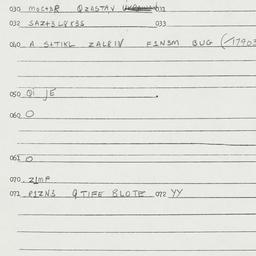 030 MOCTAR QZASTAV 031
032 SAZT3L8Y3S 033
040 A SITIKL ZAL8IV FINSM BUG (17903
050 QI JE
060 O
061 O
070 ZIMP
071 PIZN3 QTIFE BLOTE 072 YY